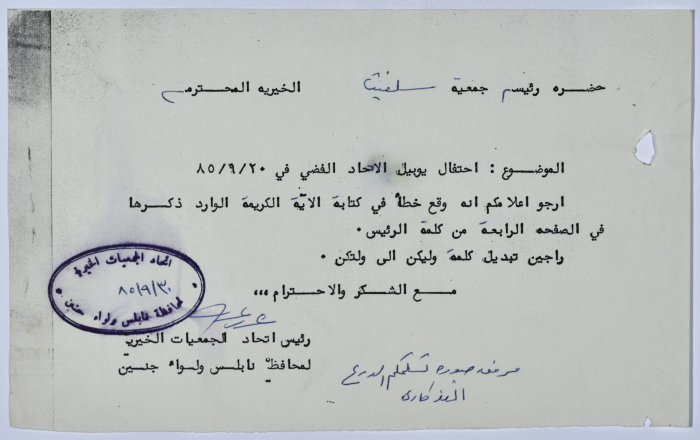 حضره رئيسم جمعية سلفيتا الخيريه المحترم
الموضوع : احتفال يوبيل الاتحاد الفضي في ٨٥/٩/٢٠
ارجو اعلامكم انه وقع خطأ في كتابة الآية الكريمة الوارد ذكرها
في الصفحه الرابعة من كلمة الرئيس٠
راجين تبديل كلمة وليكن الى ولتكن ٠
مع الشكر والاحترام ،،،
اتحاد الجمعيات الخيرية
٨٥/٩/٣٠
لمحافظة نابلس ولواء جنين
رئيس اتحاد الجمعيات الخيرية
لمحافظة نابلس ولواء جنين
مرفق صورة تسلمكم الدرع
التذكاري